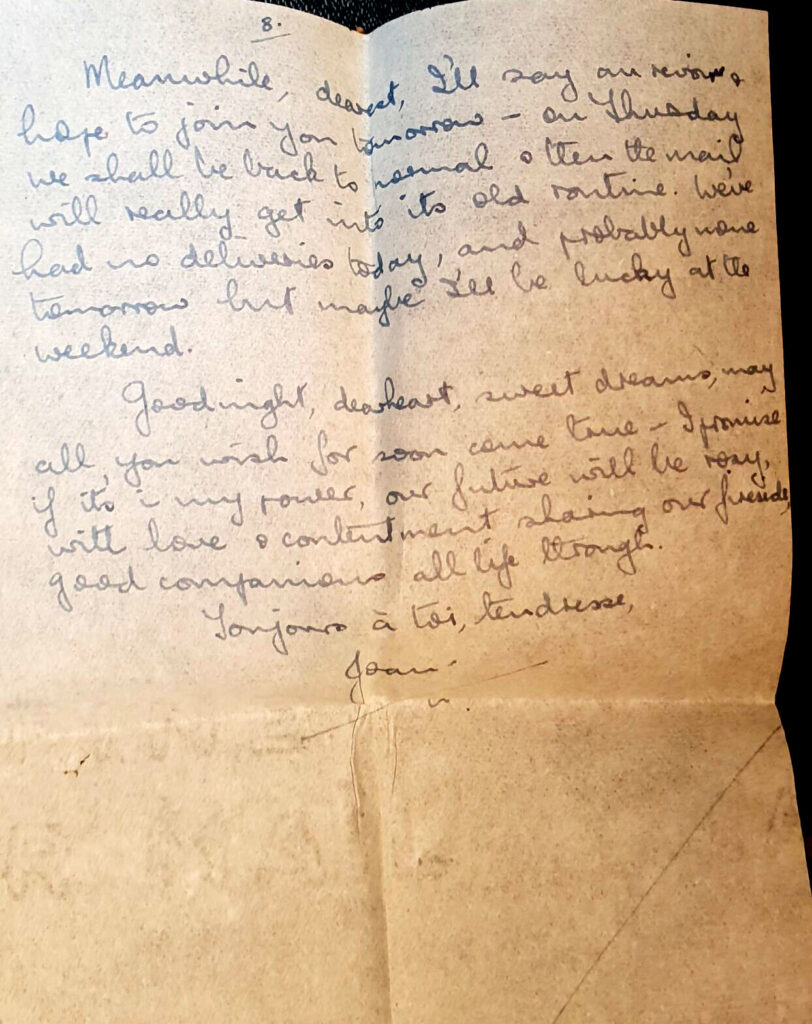 8.
Meanwhile, dearest, I'll say au revoir &
hope to join you tomorrow – on Thursday
we shall be back to normal & then the mail
will really get into its old routine. We've
had no deliveries today, and probably none
tomorrow but maybe I'll be lucky at the
weekend.
Goodnight, dearheart, sweet dreams, may
all you wish for soon come true – I promise
if its i my power, our future will be rosy,
with love & contentment sharing our fireside,
good companions all life through.
Toujours à toi, tendresse,
Joan.